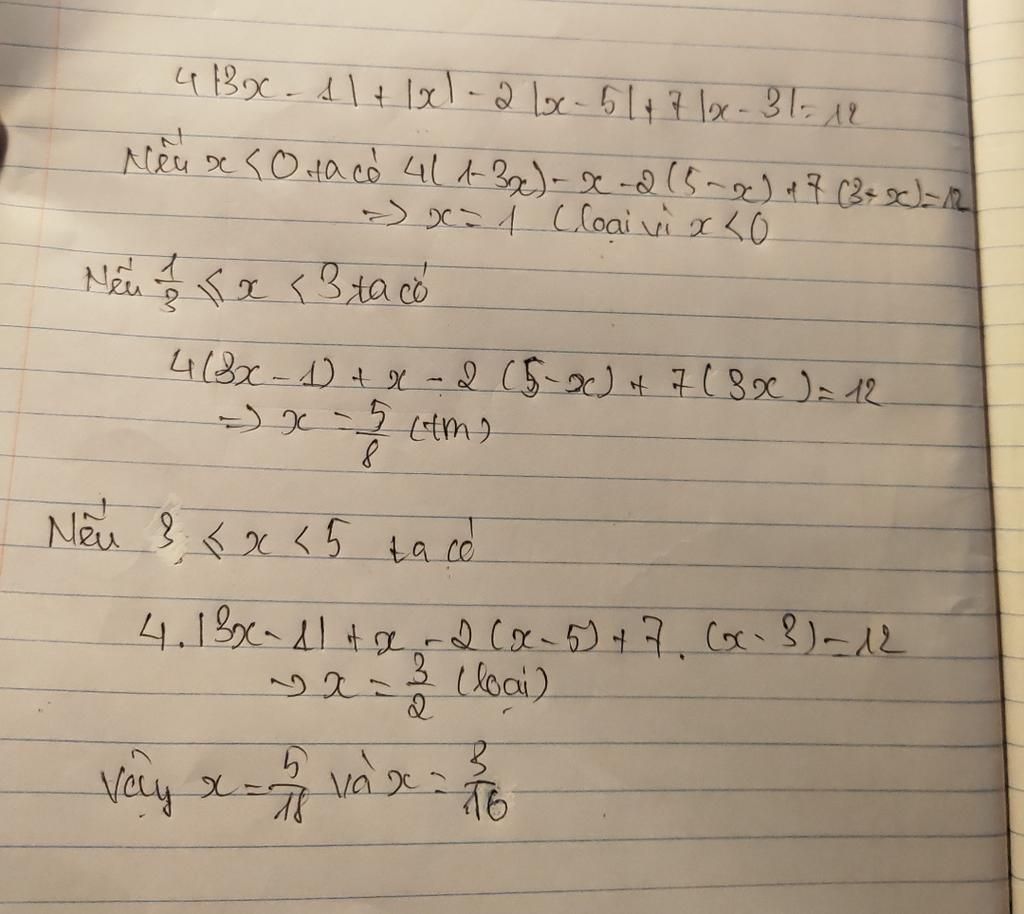 4|3x - 1| + |x| - 2|x - 5| + 7|x - 3| = 12
Nếu x < 0 ta có 4(1-3x) - x - 2(5-x) + 7(3-x) = 12
=> x = 1 (loại vì x < 0
Nếu 1/3 ≤ x < 3 ta có
4(3x - 1) + x - 2(5-x) + 7(3x) = 12
=> x = 5/8 (tm)
Nếu 3 ≤ x < 5 ta có
4.|3x - 1| + x - 2(x-5) + 7.(x-3) = 12
=> x = 3/2 (loại)
Vậy x = 5/18 và x = 3/16